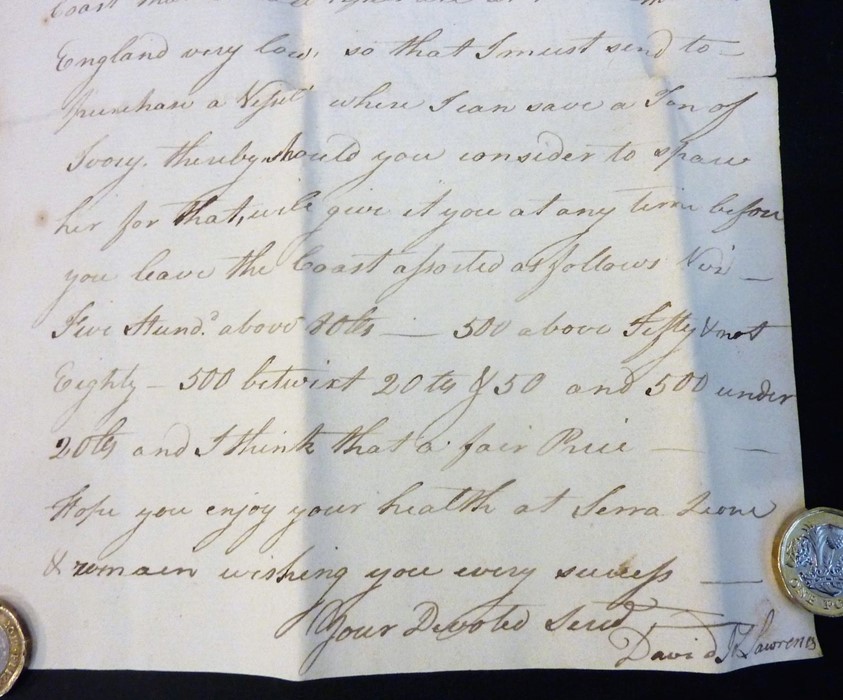 Coast
England very low, so that I must send to
purchase a Vessel where I can save a Ton of
Ivory. thereby should you consider to spare
her for that, will give it you at any time before
you leave the Coast assorted as follows Viz
Five Hund.d above 80lbs — 500 above Fifty & not
Eighty — 500 betwixt 20 lbs & 50 and 500 under
20lbs and I think that a fair Price — —
Hope you enjoy your health at Serra Leone
& remain wishing you every success —
Your Devoted Serv.t
David Lawrence
ONE PO